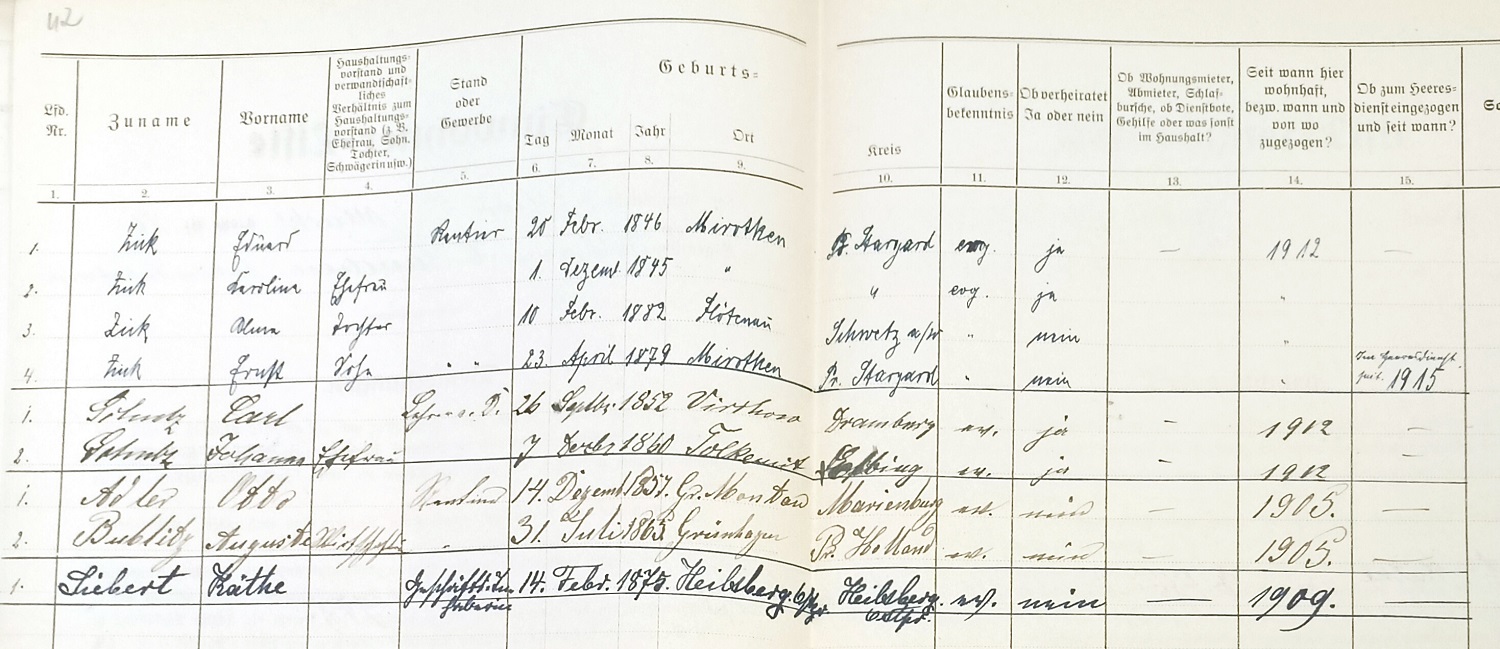 42
Lfd. Nr. Zuname Vorname Haushaltungsvorstand und verwandtschaftliches Verhältnis zum Haushaltungsvorstand (z. B. Ehefrau, Sohn, Tochter, Schwägerin usw.) Stand oder Gewerbe Geburts= Tag Monat Jahr Ort Kreis Glaubensbekenntnis Ob verheiratet Ja oder nein Ob Wohnungsmieter, Abmieter, Schlafbursche, ob Dienstbote, Gehilfe oder was sonst im Haushalt? Seit wann hier wohnhaft, bezw. wann und von wo zugezogen? Ob zum Heeresdienst eingezogen und seit wann?
1. 2. 3. 4. 5. 6. 7. 8. 9. 10. 11. 12. 13. 14. 15.
1. Zick Eduard Rentier 20 Febr. 1846 Mirotken Pr. Stargard evg. ja — 1912 —
2. Zick Karoline Ehefrau 1. Dezemb. 1845 " " evg. ja "
3. Zick Alma Tochter 10 Febr. 1882 Flötenau Schwetz a/W " nein "
4. Zick Ernst Sohn " " 23. April 1879 Mirotken Pr. Stargard " nein " Im Heeresdienst seit. 1915
1. Schulz Carl Lehrer a. D. 26 Septbr 1852 Virchow Dramburg ev. ja — 1912 —
2. Schulz Johanna Ehefrau 7 Dezbr 1860 Tolkemit Elbing ev. ja — 1912 —
1. Adler Otto Rentier 14. Dezemb 1857. Gr. Montau Marienburg ev. nein — 1905. —
2. Bublitz Auguste - 31. Juli 1865. Grünhagen Pr. Holland ev. nein — 1905. —
1. Siebert Käthe 14. Febr. 1875. Heilsberg Heilsberg. ev. nein — 1909. —
Ostpr.